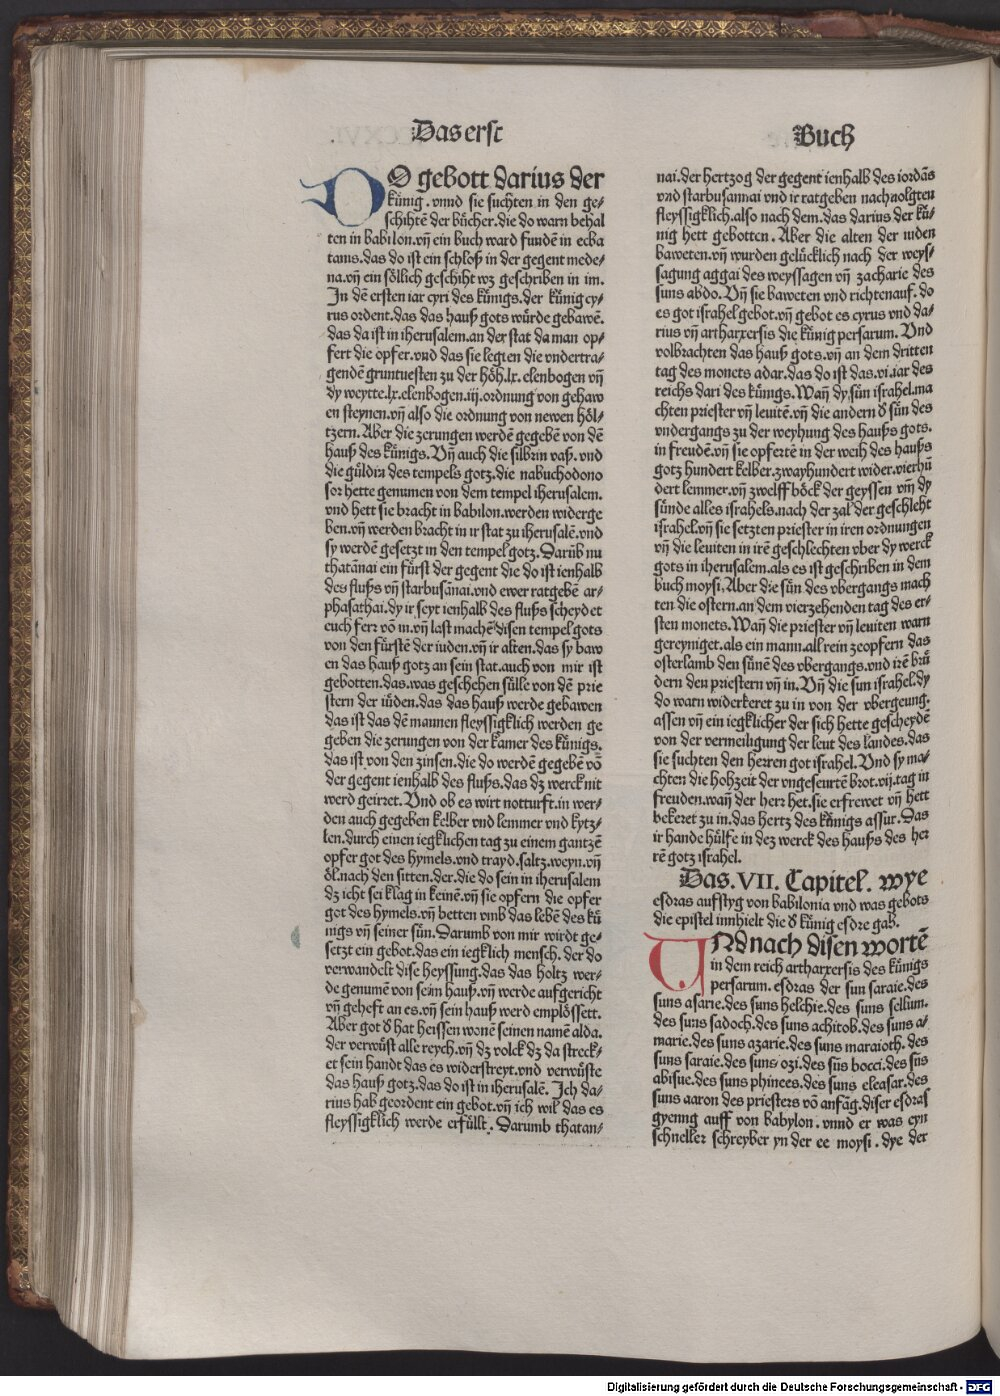 Das erst
Buch
DO gebott darius der
künig . vnnd sie suchten in den ge⸗
schihtē der bücher.die do warn behal
ten in babilon.vn̄ ein buch ward fundē in ecba
tanis.das do ist ein schloß in der gegent mede⸗
na.vn̄ ein söllich geschiht wz geschriben in im.
In dē ersten iar cyri des künigs.der künig cy⸗
rus ordent.das das hauß gots würde gebawē.
das da ist in iherusalem.an der stat da man op⸗
fert die opfer.vnd das sie legten die vndertra⸗
gendē gruntuesten zu der höh.lx.elenbogen vn̄
dy weytte.lx.elenbogen.iij.ordnung von gehaw
en steynen.vn̄ also die ordnung von newen höl⸗
tzern. Aber die zerungen werdē gegebē von dē
hauß des künigs. Vn̄ auch die silbrin vaß. vnd
die güldin des tempels gotz.die nabuchodono
sor hette genumen von dem tempel iherusalem.
vnd hett sie bracht in babilon.werden widerge
ben.vn̄ werden bracht in ir stat zu iherusalē.vnd
sy werdē gesetzt in den tempel gotz. Darüb nu
thatānai ein fürst der gegent die do ist ienhalb
des fluß vn̄ starbusānai.vnd ewer ratgebē ar⸗
phasathai.dy ir seyt ienhalb des fluß scheydet
euch ferr vō im.vn̄ last machē disen tempel gots
von den fürstē der iuden.vn̄ ir alten.das sy baw
en das hauß gotz an sein stat.auch von mir ist
gebotten.das.was geschehen sülle von dē prie
stern der iüden.das das hauß werde gebawen
das ist das dē mannen fleyssigklich werden ge
geben die zerungen von der kamer des künigs.
das ist von den zinsen.die do werdē gegebē vō
der gegent ienhalb des fluß.das dz werck nit
werd geirret. Vnd ob es wirt notturft.in wer⸗
den auch gegeben kelber vnd lemmer vnd kytz⸗
len.durch einen iegklichen tag zu einem gantzē
opfer got des hymels.vnd trayd.saltz.weyn.vn̄
öl.nach den sitten.der.die do sein in iherusalem
dz icht sei klag in keinē.vn̄ sie opfern die opfer
got des hymels.vn̄ betten vmb das lebē des kü
nigs vn̄ seiner sün. Darumb von mir wirdt ge⸗
setzt ein gebot.das ein iegklich mensch. der do
verwandelt dise heyssung.das das holtz wer⸗
de genumē von seim hauß.vn̄ werde aufgericht
vn̄ geheft an es.vn̄ sein hauß werd emplössett.
Aber got d̕ hat heissen wonē seinen namē alda.
der verwüst alle reych.vn̄ dz volck dz da streck⸗
et sein handt das es widerstreyt.vnd verwüste
das hauß gotz.das do ist in iherusalē. Ich da⸗
rius hab geordent ein gebot.vn̄ ich wil das es
fleyssigklich werde erfüllt. Darumb thatan⸗
nai.der hertzog der gegent ienhalb des iordās
vnd starbusannai vnd ir ratgeben nachuolgten
fleyssigklich.also nach dem.das darius der kü⸗
nig hett gebotten. Aber die alten der iuden
baweten.vn̄ wurden gelücklich nach der weys⸗
sagung aggai des weyssagen vn̄ zacharie des
suns abdo. Vn̄ sie baweten vnd richtenauf. do
es got israhel gebot.vn̄ gebot es cyrus vnd da⸗
rius vn̄ artharxersis die künig persarum. Vnd
volbrachten das hauß gots.vn̄ an dem dritten
tag des monets adar.das do ist das.vi.iar des
reichs dari des künigs. Wan̄ dy sün israhel.ma
chten priester vn̄ leuitē.vn̄ die andern d̕ sün des
vndergangs zu der weyhung des hauß gots.
in freudē.vn̄ sie opfertē in der weih des hauß
gotz hundert kelber.zwayhundert wider.vierhū
dert lemmer.vn̄ zwelff böck der geyssen vn̄ dy
sünde alles israhels.nach der zal der geschleht
israhel.vn̄ sie setzten priester in iren ordnungen
vn̄ die leuiten in irē geschlechten vber dy werck
gots in iherusalem.als es ist geschriben in dem
buch moysi. Aber die sün des vbergangs mach
ten die ostern.an dem vierzehenden tag des er⸗
sten monets. Wan̄ die priester vn̄ leuiten warn
gereyniget.als ein mann.all rein zeopfern das
osterlamb den sünē des vbergangs.vnd irē brü
dern den priestern vn̄ in. Vn̄ die sun israhel.dy
do warn widerkeret zu in von der vbergeung.
assen vn̄ ein iegklicher der sich hette gescheydē
von der vermeiligung der leut des landes.das
sie suchten den herren got israhel. Vnd sy ma⸗
chten die hohzeit der vngeseurtē brot.vij.tag in
freuden.wan̄ der herr het.sie erfrewet vn̄ hett
bekeret zu in.das hertz des künigs assur. Das
ir hande hülfe in dez werck des hauß des her
rē gotz israhel.
Das.VII. Capitel. wye
esdras aufstyg von babilonia vnd was gebots
die epistel innhielt die d̕ künig esdre gab.
VNd nach disen wortē
in dem reich artharxersis des künigs
persarum. esdras der sun saraie.des
suns asarie.des suns helchie.des suns sellum.
des suns sadoch.des suns achitob.des suns a⸗
marie.des suns azarie.des suns maraioth. des
suns saraie.des suns ozi.des sūs bocci.des sūs
abisue.des suns phinees.des suns eleasar.des
suns aaron des priesters vō anfāg.diser esdras
gyenng auff von babylon. vnnd er was eyn
schneller schreyber yn der ee moysi. dye der
Digitalisierung gefördert durch die Deutsche Forschungsgemeinschaft - DFG